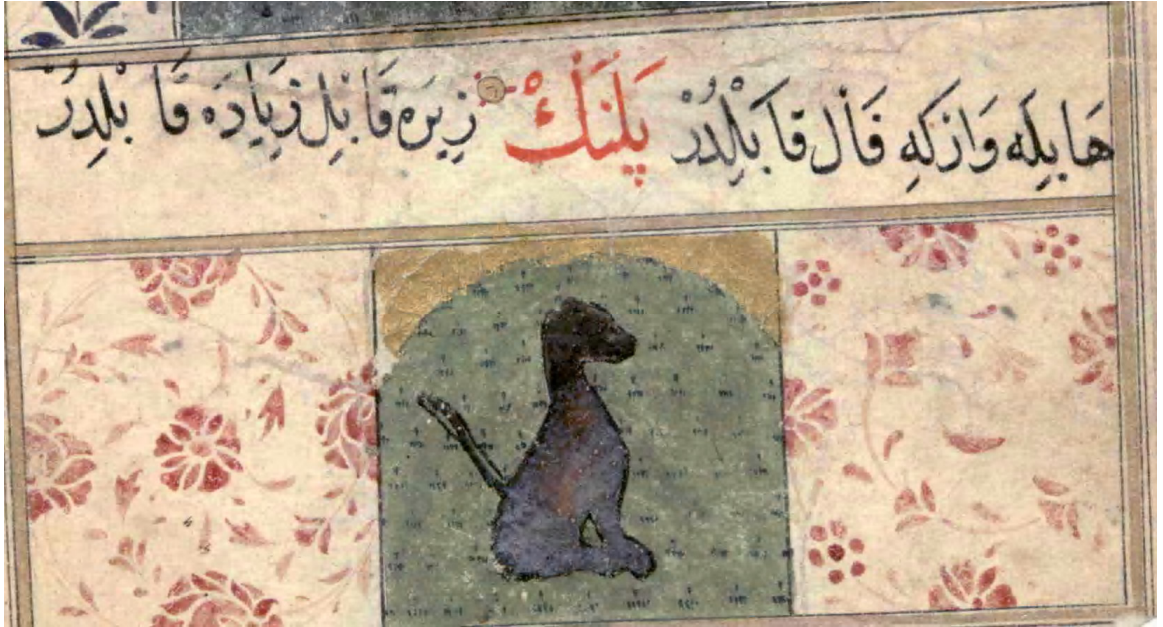 هَا بِكِه وَازْ كِهِ قَالْ قَا كَبْلِدُرْ پَلَنَكْ زِيرَه قَا بِلْ زِيَادَه قَا بْلِدِرْ